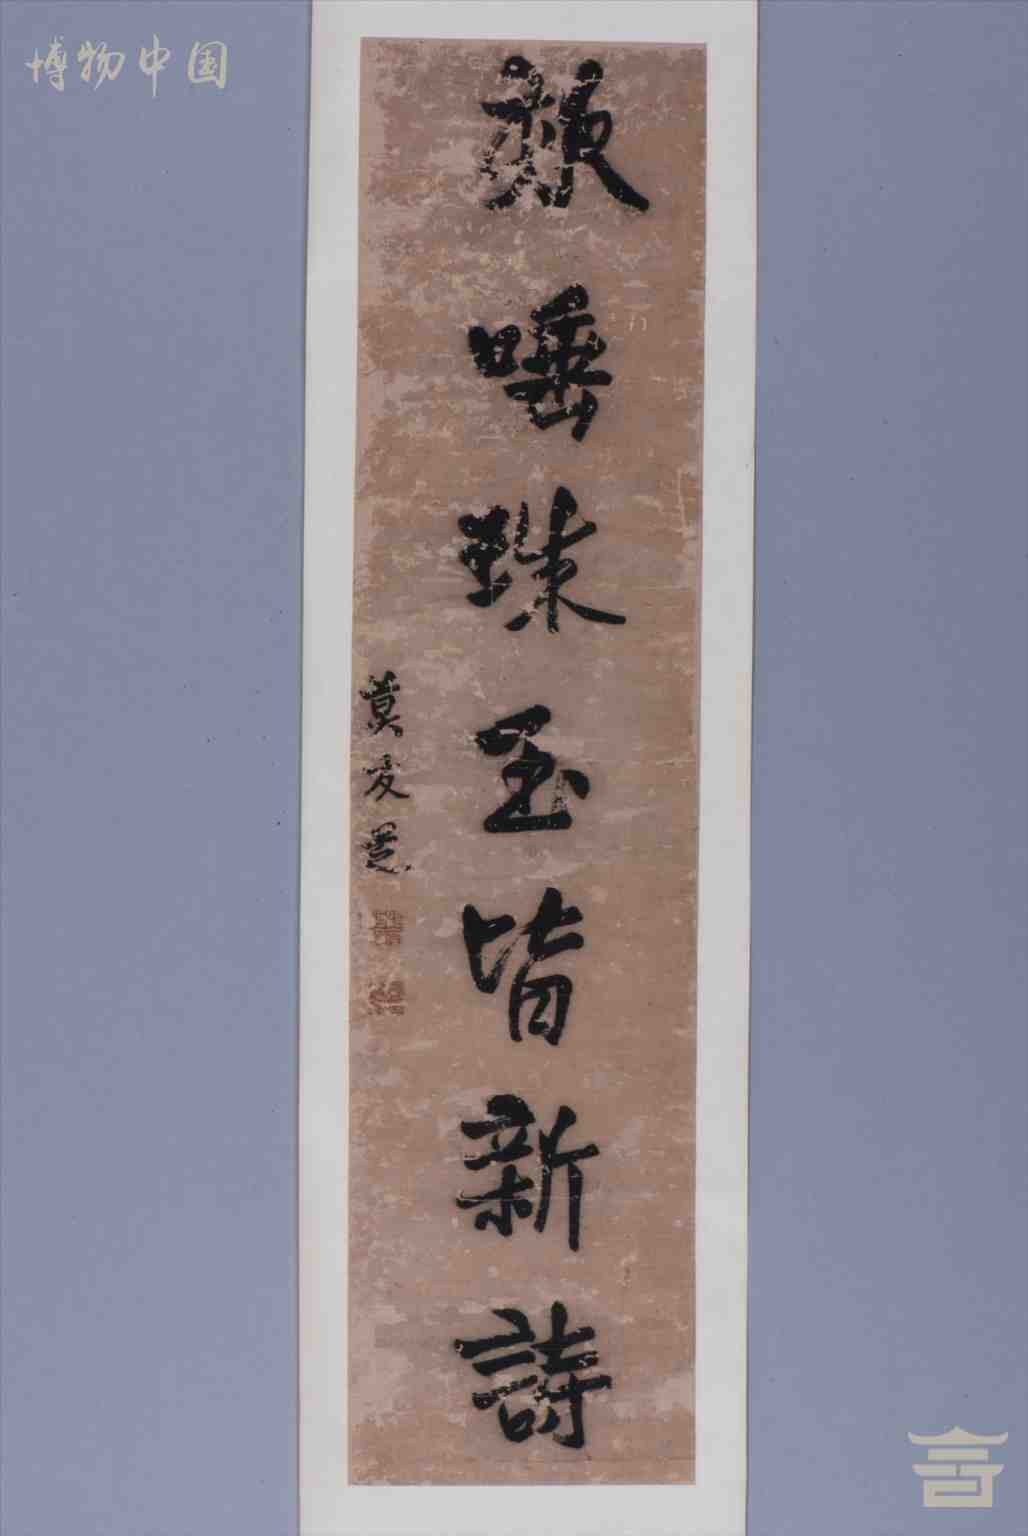 博物中国
欬唾珠玉皆新詩
莫友芝